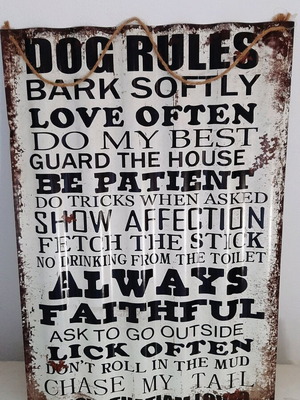 DOG RULES
BARK SOFTLY
LOVE OFTEN
DO MY BEST
GUARD THE HOUSE
BE PATIENT
DO TRICKS WHEN ASKED
SHOW AFFECTION
FETCH THE STICK
NO DRINKING FROM THE TOILET
ALWAYS
FAITHFUL
ASK TO GO OUTSIDE
LICK OFTEN
DON'T ROLL IN THE MUD
CHASE MY TAIL